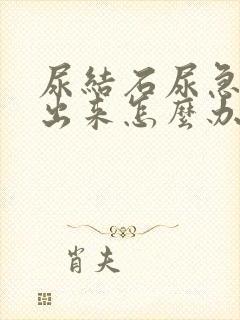 尿結石尿急
出来怎麼办
肖夫